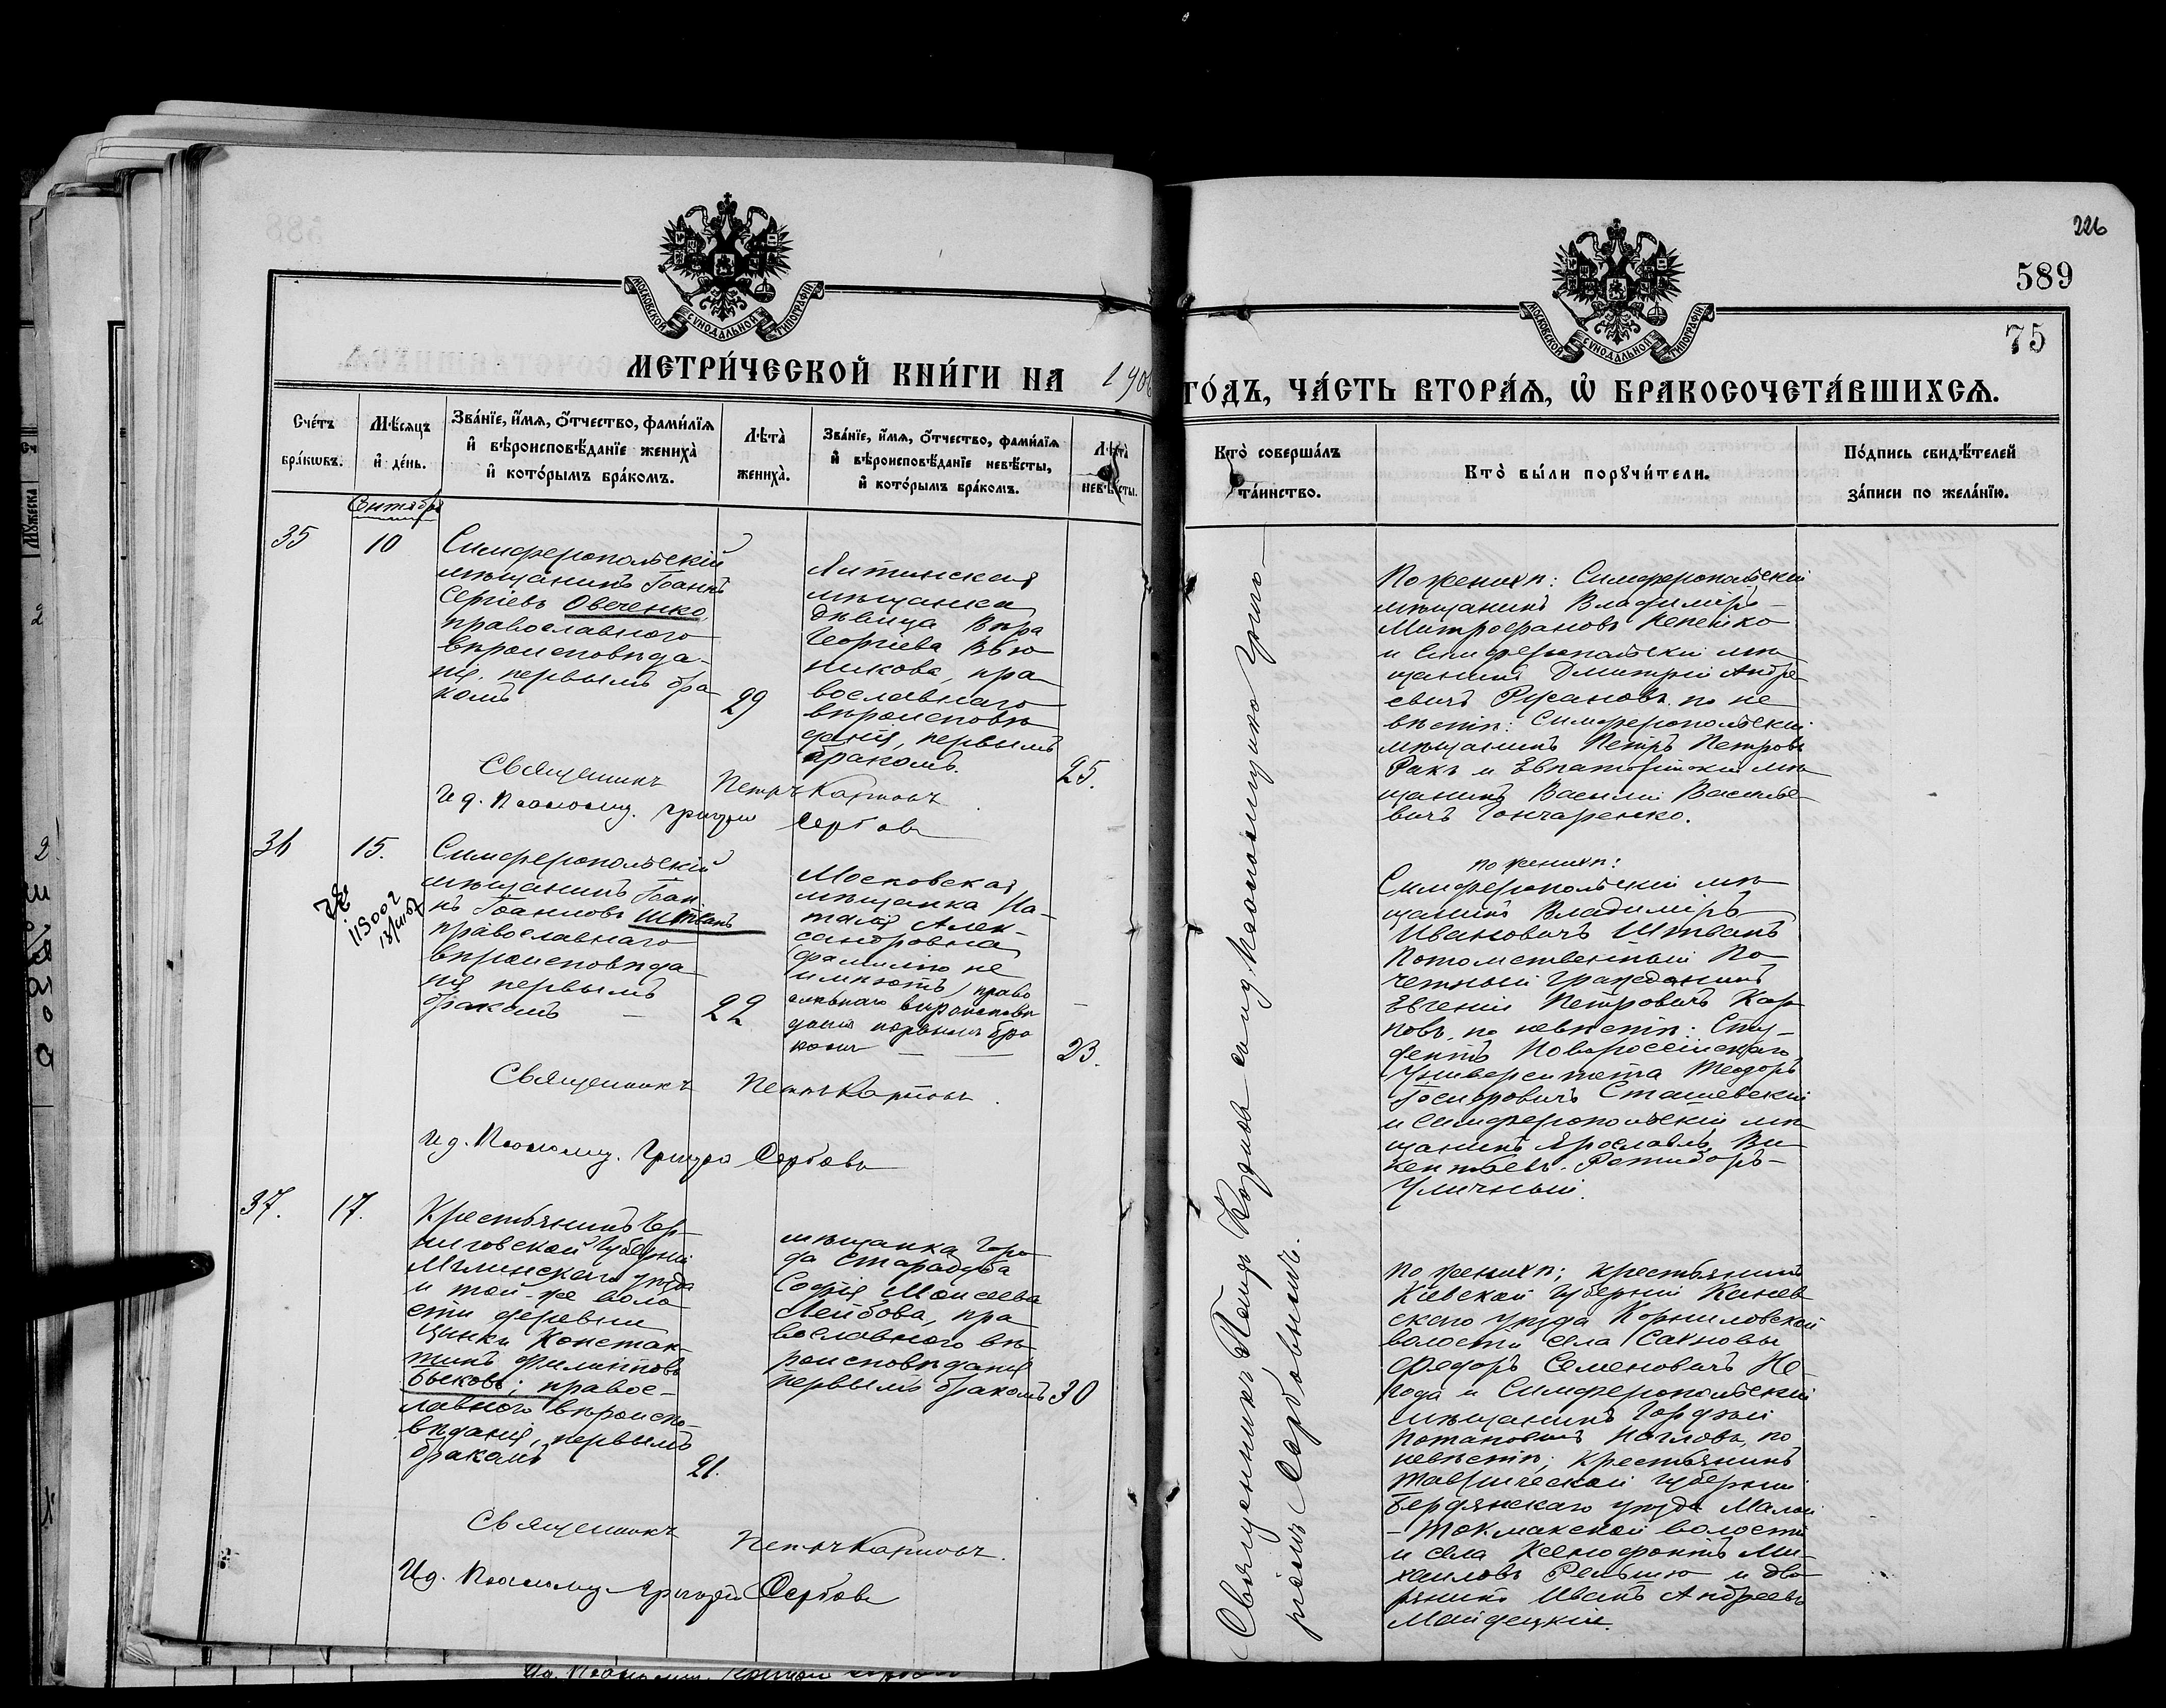 226
589
75
МОСКОВСКОЙ СУНОДАЛЬНОЙ ТИПОГРАФІИ
МОСКОВСКОЙ СУНОДАЛЬНОЙ ТИПОГРАФІИ
МЕТРИ́ЧЕСКОЙ КНИ́ГИ НА 190
ГО́ДЪ, ЧА́СТЬ ВТОРА́Я, Ѡ҆ БРАКОСОЧЕТА́ВШИХСѦ.
Сче́тъ
бра́кѡвъ.
Мѣ́сяцъ
и҆ де́нь.
Зва́нїе, и҆́мѧ, ѻ҆́тчество, фами́лїѧ
и҆ вѣроисповѣ́данїе жениха̀
и҆ кото́рымъ бра́комъ.
Лѣта̀
жениха̀.
Зва́нїе, и҆́мѧ, ѻ҆́тчество, фами́лїѧ
и҆ вѣроисповѣ́данїе невѣ́сты,
и҆ кото́рымъ бра́комъ.
Лѣта̀
невѣ́сты.
Кто̀ соверша́лъ
та́инство.
Кто̀ бы́ли порꙋчи́тели.
По́дпись свидѣ́телей
за́писи по жела́нїю.
Сентябрь
35
10
Симферопольскій
мѣщанинъ Іоаннъ
Сергіевъ Овеченко,
православного
вѣроисповѣда-
нія, первымъ бра-
комъ
29
Ялтинская
мѣщанка
дѣвица Вѣра
Георгіева Вью-
никова, пра-
вославнаго
вѣроисповѣ-
данія, первымъ
бракомъ.
25.
Священникъ Петръ Карповъ
И д. Псаломщ. Григорій Сербовъ
По женихѣ: Симферопольскій
мѣщанинъ Владиміръ
Митрофановъ Кепейко
и Симферопольскій мѣ-
щанинъ Дмитрій Андре-
евичъ Русановъ, по не-
вѣстѣ: Симферопольскій
мѣщанинъ Петръ Петровъ
Ракъ и Евпаторійскій мѣ-
щанинъ Василій Василье-
вичъ Гончаренко.
36
15.
115002
Симферопольскій
мѣщанинъ Іоан-
нъ Іоанновъ Штванъ
православнаго
вѣроисповѣда-
нія первымъ
бракомъ
22
Московская
мѣщанка На-
талія Алек-
сандровна
фамилію не
имѣютъ, право
славнаго вѣроисповѣ
данія первымъ бра
комъ
23.
Священникъ Петръ Карповъ.
И д. Псаломщ. Григорій Сербовъ
по женихѣ:
Симферопольскій мѣ-
щанинъ Владиміръ
Ивановичъ Штванъ
Потомственный По-
четный Гражданинъ
Евгеній Петровичъ Кар-
повъ, по невѣстѣ: Сту-
дентъ Новороссійскаго
Университета Теодоръ
Іосифовичъ Сташевскій
и Симферопольскій мѣ-
щанинъ Ярославъ Ви-
кентьевъ Ратиборъ-
Уличный.
37.
17.
Крестьянинъ Чер-
ниговской Губерніи
Мглинскаго уѣзда
и той-же воло-
сти деревни
Цынки Констан-
тинъ Филиповъ
Быковъ; правос-
лавного вѣроиспо-
вѣданія, первымъ
бракомъ
21.
мѣщанка горо-
да Стародуба
Софія Моисеева
Лейбова, пра-
вославного вѣ-
роисповѣданія
первымъ бракомъ
30
Священникъ Петръ Карповъ.
И д. Псаломщ Григорій Сербовъ
По женихѣ; крестьянинъ
Кіевской Губерніи Канев-
скаго уѣзда Корниловской
волости села Сахновы
Федоръ Семеновичъ Не-
года и Симферопольскій
мѣщанинъ Гордѣй
Потаповичъ Нагловъ, по
невѣстѣ; крестьянинъ
Таврической Губерніи
Бердянскаго уѣзда Малой
-Токмакской волости
и села Ксенофонтъ Ми-
хаиловъ Репько и дво-
рянинъ Иванъ Андреевъ
Майдецкій.
Священникъ Петръ Карповъ съ и д Псаломщика Григо-
ріемъ Сербовымъ.